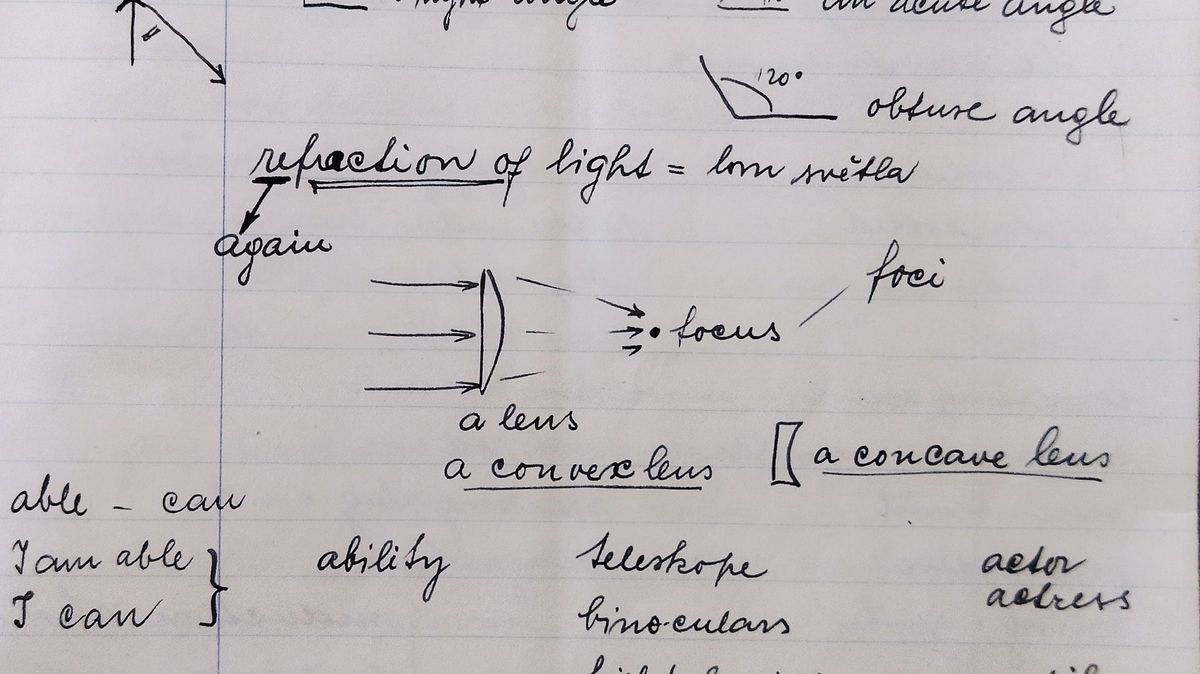 angle an acute angle
120°
obtuse angle
refraction of light = lom světla
again
foci
focus
a lens
a convex lens
a concave lens
able - can
I am able
I can
ability
teleskope
binoculars
actor
actress